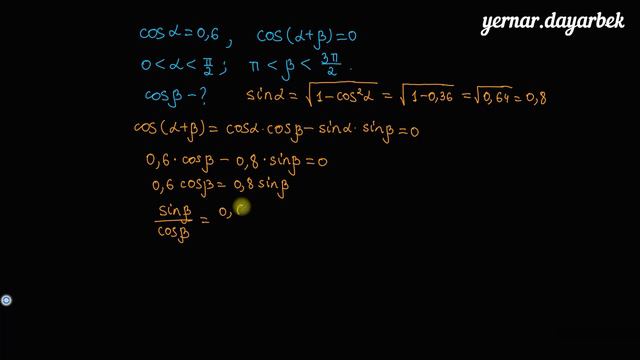 yernar.dayarbek
cosα=0,6, cos(α+β)=0
0<α<π/2; π<β<3π/2.
cosβ-? sinα=√(1-cos²α)=√(1-0,36)=√0,64=0,8
cos(α+β)=cosα·cosβ-sinα·sinβ=0
0,6·cosβ-0,8·sinβ=0
0,6 cosβ=0,8 sinβ
sinβ/cosβ=0,